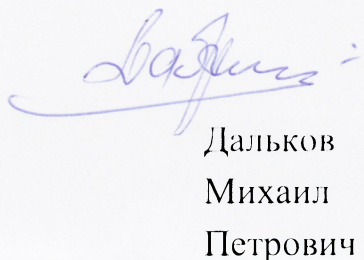 Дальков
Михаил
Петрович